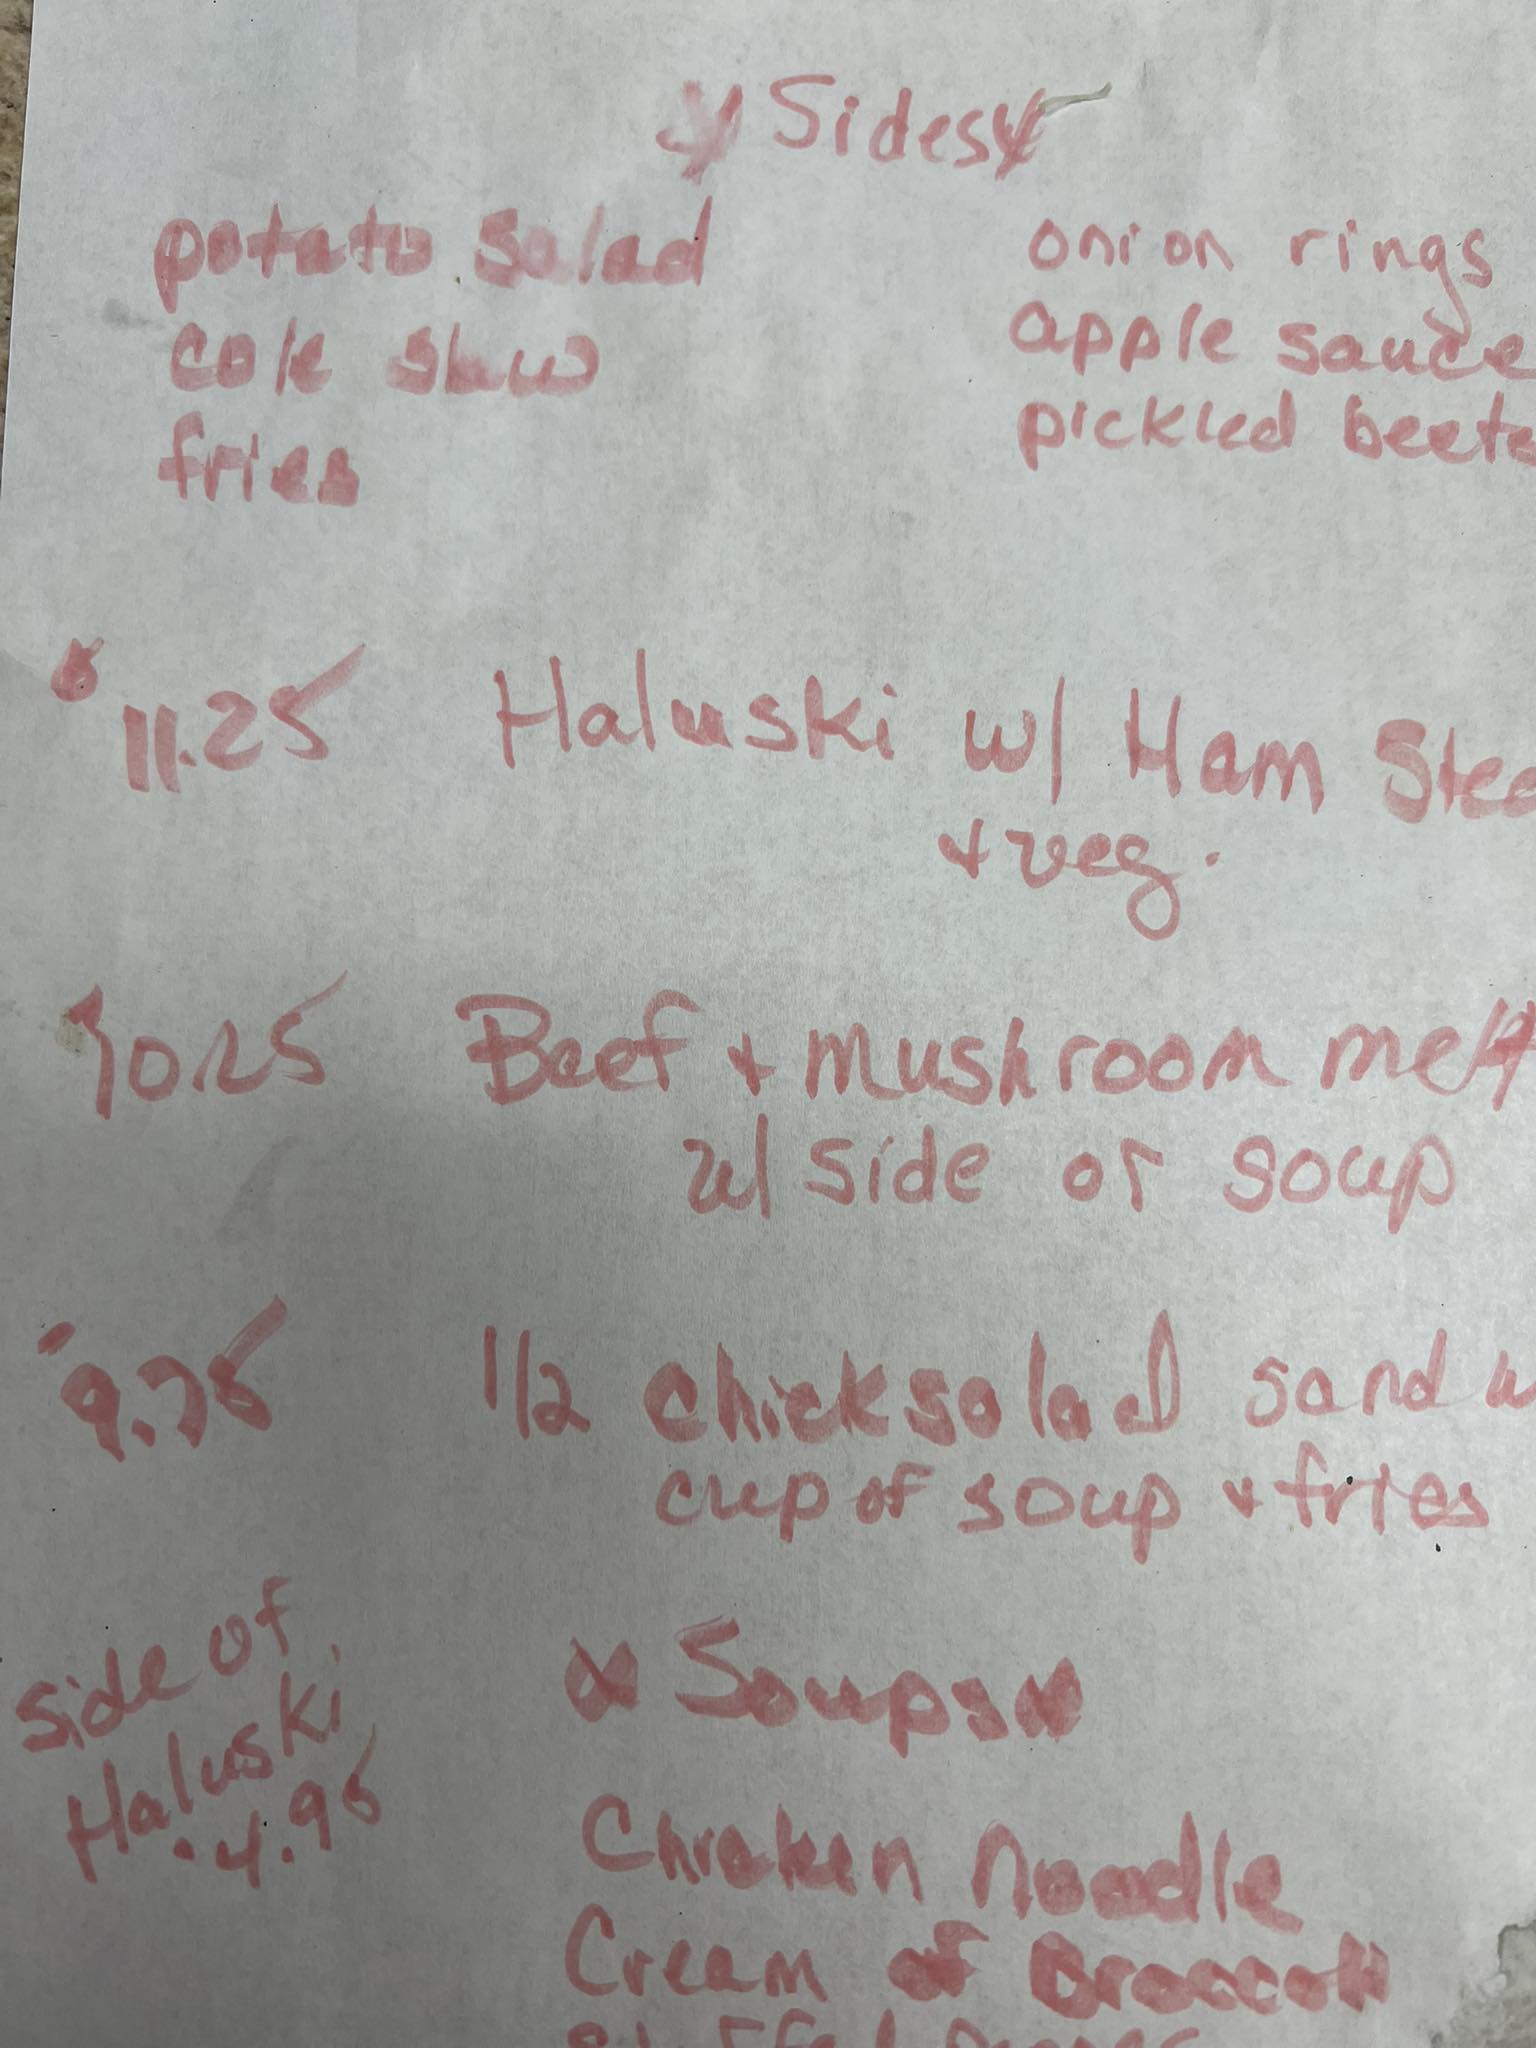 * Sides *
potato salad
onion rings
cole slaw
apple sauce
fries
pickled beets
11.25 Haluski w/ Ham Stea
+ veg.
10.25 Beef + mushroom melt
w/ side or soup
9.75 1/2 chick salad sandw
cup of soup + fries
side of
Haluski
4.95
* Soups *
Chicken Noodle
Cream of Broccoli
Stuffed Pepper